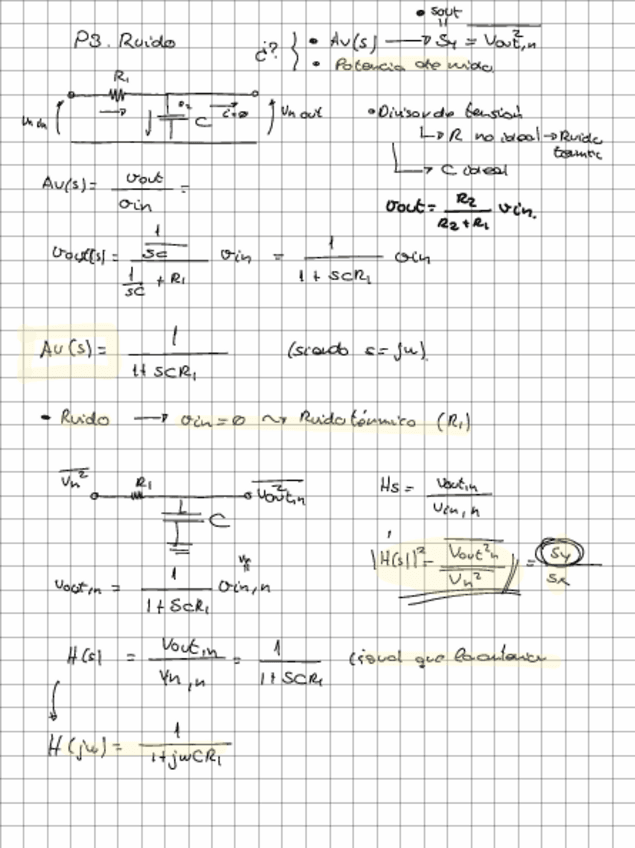 • sout
P3. Ruido
¿? } • Av(s) → Sy = Vout,n²
• Potencia de ruido
R1
Vn in
C
i=0
Vn out
• Divisor de tensión
↳ R no ideal → Ruido
→ C ideal
Av(s) = vout / vin =
vout = R2 / (R2 + R1) vin.
vout(s) = (1/SC) / (1/SC + R1) vin = 1 / (1 + SCR1) vin
Av(s) = 1 / (1 + SCR1) (siendo s = jw)
• Ruido → vin = 0 ~> Ruido térmico (R1)
Vn² R1 Vout,n²
C
Hs = Vout,n / Vin,n
|H(s)|² = Vout²n / Vn² = Sy / Sx
vout,n = 1 / (1 + SCR1) vin,n
H(s) = Vout,n / Vn,n = 1 / (1 + SCR1) (igual que
H(jw) = 1 / (1 + jwCR1)